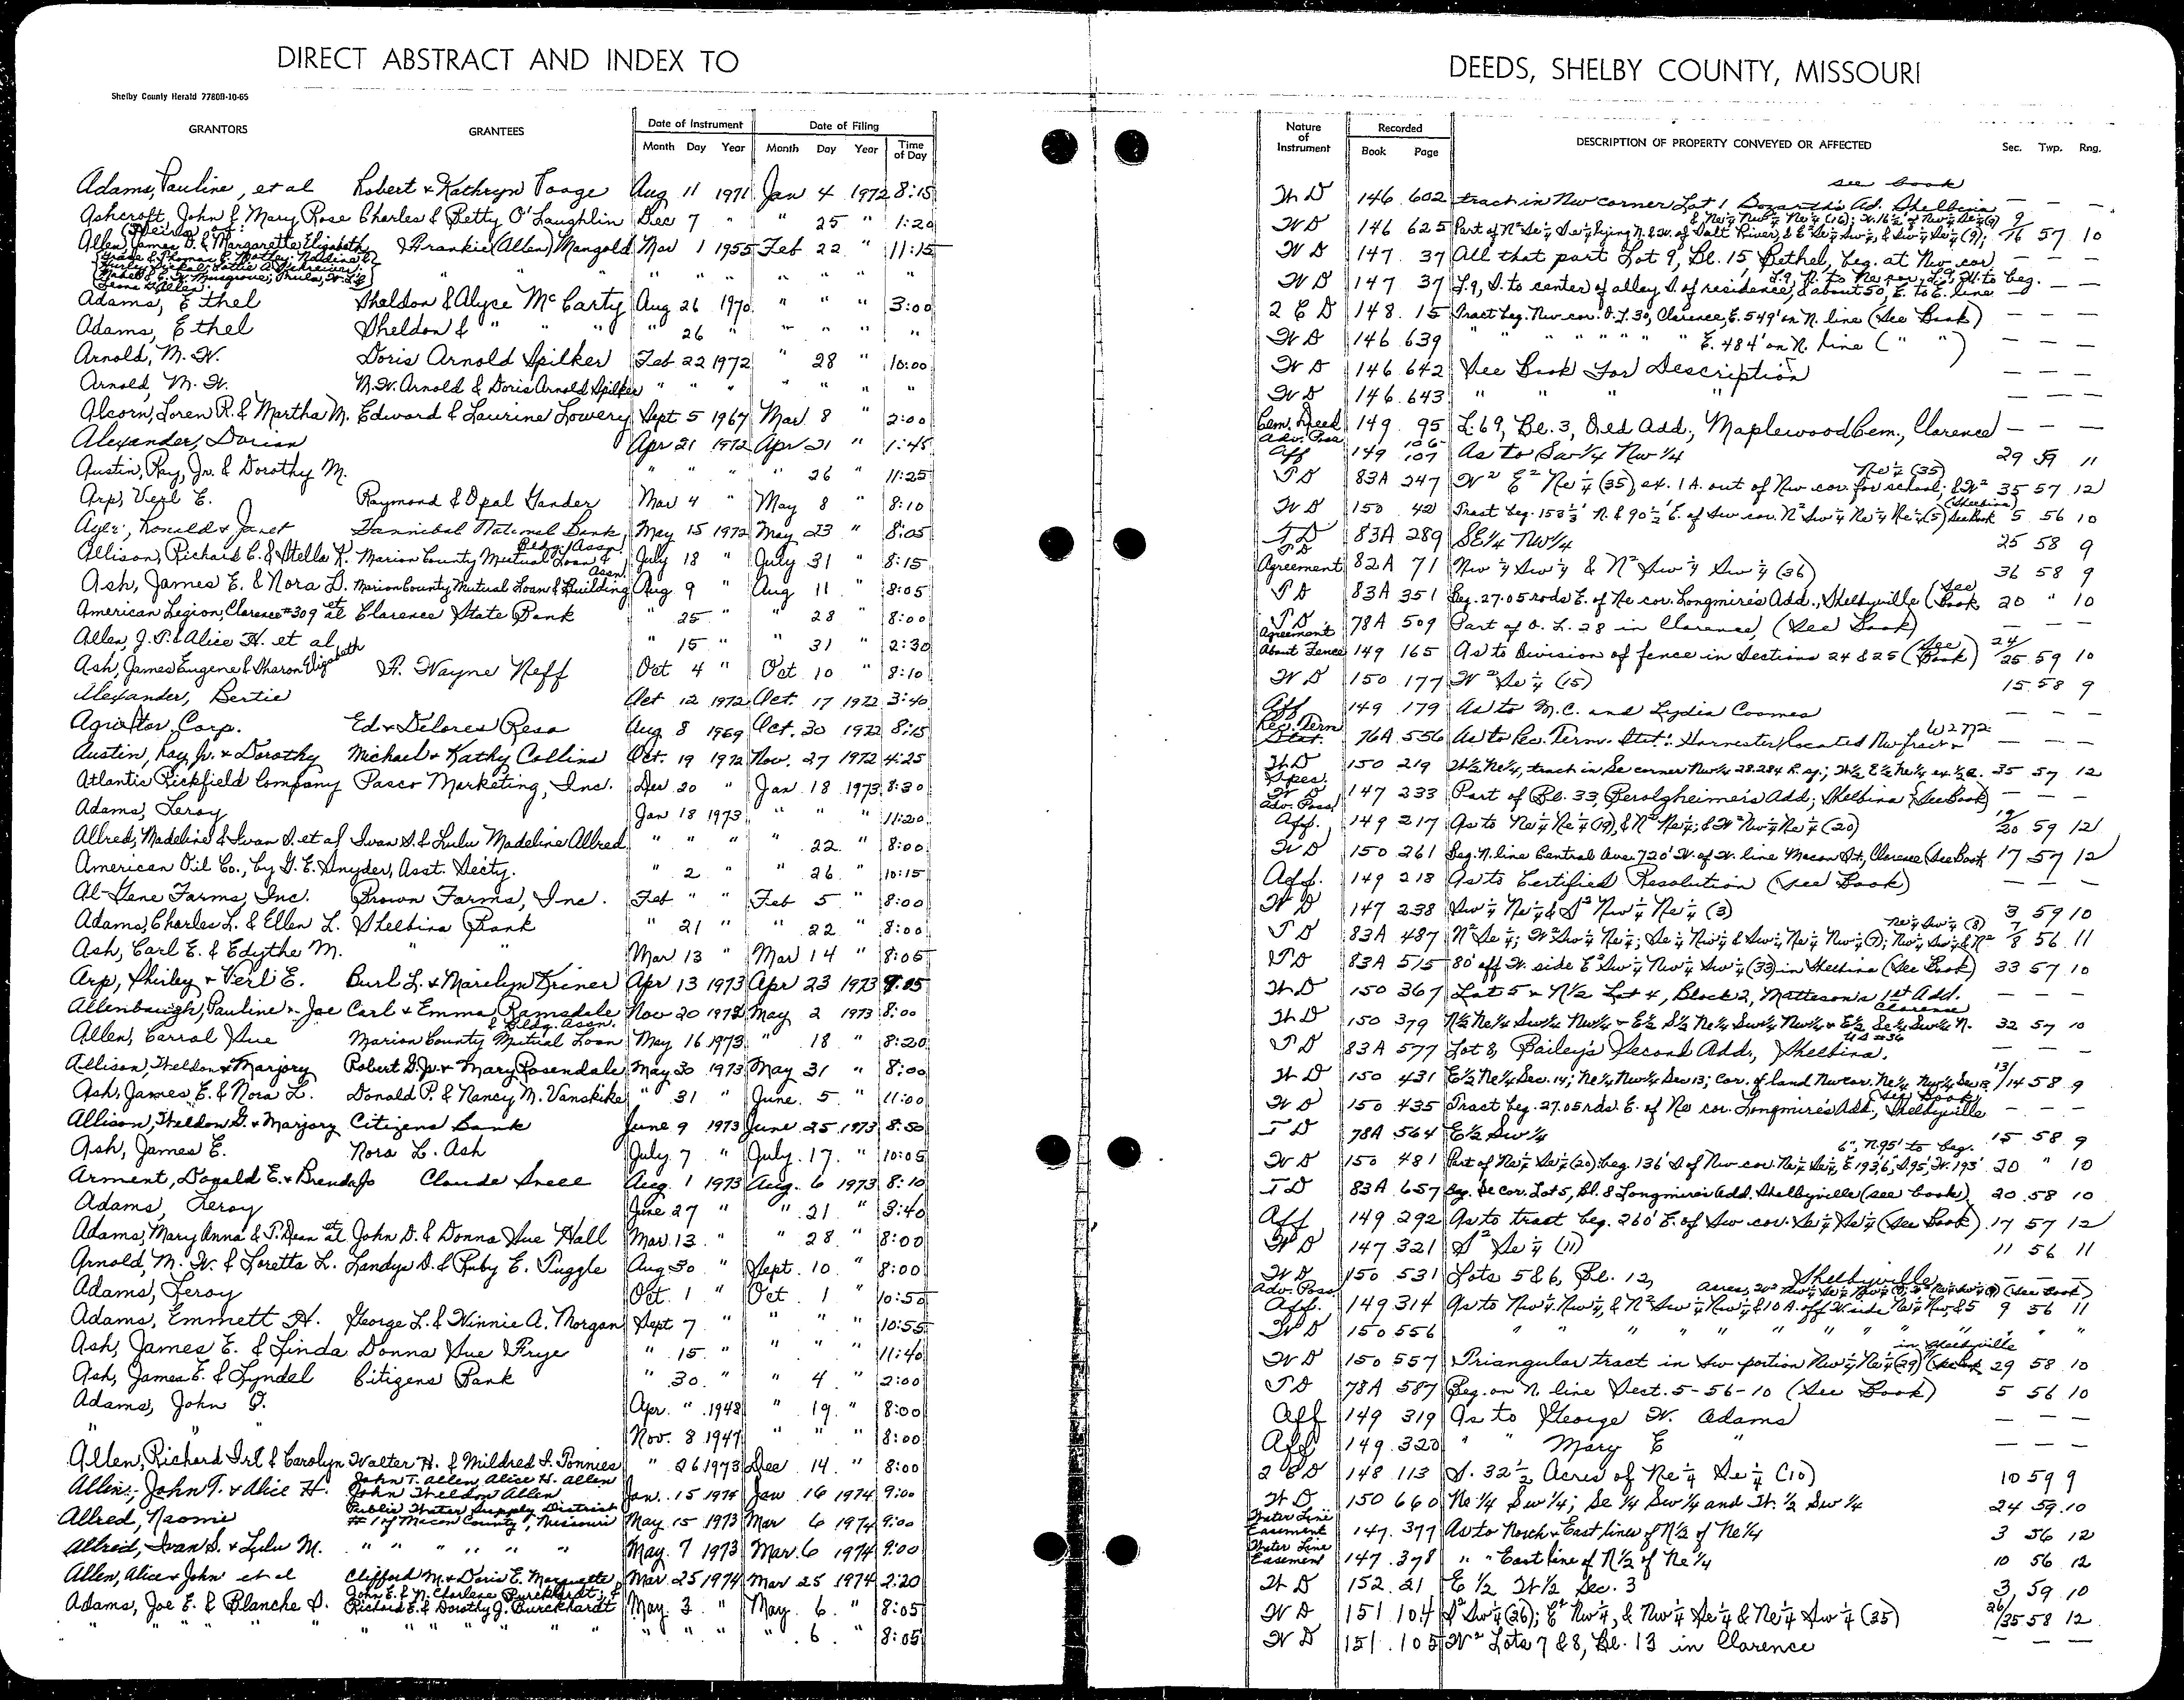 DIRECT ABSTRACT AND INDEX TO
Shelby County Herald 7780B-10-65
GRANTORS GRANTEES Date of Instrument Date of Filing
Month Day Year Month Day Year Time of Day
Adams, Pauline, et al Robert & Kathryn Aug 11 1971 Jan 4 1972 8:15
Ashcroft, John & Mary Rose Charles & Betty O'Laughlin Dec 7 " " 25 " 1:20
(Heirs of:
Allen, James D. & Margarette Elizabeth & Frankie (Allen) Mangold Mar 1 1955 Feb 22 " 11:15
" " " " " " " " "
Adams, Ethel Sheldon & Alyce McCarty Aug 26 1970 " " " 3:00
Adams, Ethel Sheldon & " " " 26 " " " " "
Arnold, M. W. Doris Arnold Spilker Feb 22 1972 " 28 " 10:00
Arnold, M. W. M. W. Arnold & Doris Arnold Spilker " " " " " " "
Alcorn, Loren R. & Martha M. Edward & Laurine Lowery Sept 5 1967 Mar 8 " 2:00
Alexander, Dorian Apr 21 1972 Apr 21 " 1:45
Austin, Ray, Jr. & Dorothy M. " " " " 26 " 11:25
Arp, Verl E. Raymond & Opal Gander Mar 4 " May 8 " 8:10
Ayer, Ronald & Janet Hannibal National Bank May 15 1972 May 23 " 8:05
Bldg. Assn.
Allison, Richard C. & Stella K. Marion County Mutual Loan & July 18 " July 31 " 8:15
Assn.
Ash, James E. & Nora L. Marion County Mutual Loan & Building Aug 9 " Aug 11 " 8:05
American Legion, Clarence #309 et al Clarence State Bank " 25 " " 28 " 8:00
Allen, J. T. & Alice H. et al " 15 " " 31 " 2:30
Ash, James Eugene & Sharon Elizabeth H. Wayne Neff Oct 4 " Oct 10 " 8:10
Alexander, Bertie Oct 12 1972 Oct. 17 1972 3:40
Agristor Corp. Ed & Delores Resa Aug 8 1969 Oct. 30 1972 8:15
Austin, Ray, Jr. & Dorothy Michael & Kathy Collins Oct. 19 1972 Nov. 27 1972 4:25
Atlantic Richfield Company Pasco Marketing, Inc. Dec 20 " Jan 18 1973 8:30
Adams, Leroy Jan 18 1973 " " " 11:20
Allred, Madeline & Ivan S. et al Ivan S. & Lulu Madeline Allred " " " " 22 " 8:00
American Oil Co., by G. E. Snyder, Asst. Sec'ty. " 2 " " 26 " 10:15
Al-Gene Farms, Inc. Brown Farms, Inc. Feb " " Feb 5 " 8:00
Adams, Charles L. & Ellen L. Shelbina Bank " 21 " " 22 " 8:00
Ash, Carl E. & Edythe M. " " Mar 13 " Mar 14 " 8:05
Arp, Shirley & Verl E. Burl L. & Marilyn Kriner Apr 13 1973 Apr 23 1973 9:05
Allenbaugh, Pauline & Joe Carl & Emma Ramsdale Nov 20 1972 May 2 1973 8:00
& Bldg. Assn.
Allen, Carral Sue Marion County Mutual Loan May 16 1973 " 18 " 8:20
Allison, Sheldon & Marjory Robert D. Jr. & Mary Rosendale May 30 1973 May 31 " 8:00
Ash, James E. & Nora L. Donald P. & Nancy M. Vanskike " 31 " June 5 " 11:00
Allison, Sheldon G. & Marjory Citizens Bank June 9 1973 June 25 1973 8:50
Ash, James E. Nora L. Ash July 7 " July 17 " 10:05
Arment, Donald E. & Brenda Jo Claude Snell Aug. 1 1973 Aug. 6 1973 8:10
Adams, Leroy June 27 " " 21 " 3:40
Adams, Mary Anna & J. Dean et al John D. & Donna Sue Hall Mar. 13 " " 28 " 8:00
Arnold, M. W. & Loretta L. Landye D. & Ruby E. Tuggle Aug 30 " Sept. 10 " 8:00
Adams, Leroy Oct. 1 " Oct. 1 " 10:50
Adams, Emmett H. George L. & Winnie A. Morgan Sept 7 " " " " 10:55
Ash, James E. & Linda Donna Sue Frye " 15 " " " " 11:40
Ash, James E. & Lyndel Citizens Bank " 30 " " 4 " 2:00
Adams, John Q. Apr. " 1948 " 19 " 8:00
" " Nov. 8 1947 " " " 8:00
Allen, Richard Irl & Carolyn Walter H. & Mildred I. Tonnies " 26 1973 Dec 14 " 8:00
John T. Allen, Alice H. Allen
Allen, John T. & Alice H. John Sheldon Allen Jan. 15 1974 Jan 16 1974 9:00
Public Water Supply District
Allred, Naomi #1 of Macon County, Missouri May 15 1973 Mar 6 1974 9:00
Allred, Ivan S. & Lulu M. " " " " " " May 7 1973 Mar. 6 1974 9:00
Allen, Alice & John et al Clifford M. & Doris E. Marquette Mar 25 1974 Mar 25 1974 2:20
John E. & N. Charlene Burckhardt; &
Adams, Joe E. & Blanche D. Richard E. & Dorothy J. Burckhardt May 3 " May 6 " 8:05
" " " " " " " " " " " " 6 " 8:05
DEEDS, SHELBY COUNTY, MISSOURI
Nature of Instrument Recorded DESCRIPTION OF PROPERTY CONVEYED OR AFFECTED Sec. Twp. Rng.
Book Page
see book
W D 146 602 tract in Nw corner Lot 1 Bozarth's Ad. Shelbina — — —
W D 146 625 Part of N² Se¼ Se¼ lying N. & W. of Salt River, & E² Se¼ Sw¼, & Sw¼ Se¼ (9); 9/16 57 10
W D 147 37 All that part Lot 9, Bl. 15 Bethel, beg. at Nw cor. — — —
L. 9, N. to Ne cor. L. 9, W. to beg.
W D 147 37 L. 9, S. to center of alley S. of residence, & about 50, E. to E. line — —
2 E D 148 15 Tract beg. Nw cor. O. L. 30, Clarence, E. 549' on N. line (See Book) — — —
W D 146 639 " " " " " " E. 484' on N. line ( " " ) — — —
W D 146 642 See Book For Description — — —
W D 146 643 " " " " — — —
Cem. Deed 149 95 L. 69, Bl. 3, Old Add., Maplewood Cem., Clarence — — —
Adv. Poss. Aff 149 106 107 As to Sw¼ Nw¼ 29 59 11
Ne¼ (35)
T D 83A 247 W² E² Ne¼ (35), ex. 1 A. out of Nw cor. for school; & W² 35 57 12
(Shelbina)
W D 150 42 Tract beg. 153⅓' N. & 90½' E. of Sw cor. N² Sw¼ Ne¼ Ne¼ (5) See Book 5 56 10
T D 83A 289 SE¼ NW¼ 25 58 9
T D
Agreement 82A 71 Nw¼ Sw¼ & N² Sw¼ Sw¼ (36) 36 58 9
T D 83A 351 Beg. 27.05 rods E. of Ne cor. Longmire's Add., Shelbyville (See Book 20 " 10
T D 78A 509 Part of O. L. 28 in Clarence, (See Book) — — —
Agreement About Fence 149 165 As to Division of fence in Sections 24 & 25 (See Book) 24/25 59 10
W D 150 177 W² Se¼ (15) 15 58 9
Aff 149 179 As to M. C. and Lydia Coomes — — —
Rec. Term Stat. 76A 556 As to Rec. Term. Stat: Harvester located Nw fract — — —
W D 150 219 W½ Ne¼, tract in Se corner Nw¼ 28.284 R. sq.; W½ E½ Ne¼ ex. 1 a. 35 57 12
Spec. W D 147 233 Part of Bl. 33, Berolzheimer's Add; Shelbina (See Book) — — —
Adv. Poss. Aff. 149 217 As to Ne¼ Ne¼ (19), & N² Ne¼; & W² Nw¼ Ne¼ (20) 19/20 59 12
W D 150 261 Beg. N. line Central Ave. 720' W. of W. line Macon St., Clarence (See Book 17 57 12
Aff. 149 218 As to Certified Resolution (See Book) — — —
W D 147 238 Sw¼ Ne¼ & S² Nw¼ Ne¼ (3) 3 59 10
Ne¼ Sw¼ (8)
T D 83A 487 N² Se¼; W² Sw¼ Ne¼; Se¼ Nw¼ & Sw¼ Ne¼ Nw¼ (7); Nw¼ Sw¼ & N² 7/8 56 11
T D 83A 515 80' off W. side E² Sw¼ Nw¼ Sw¼ (33) in Shelbina (See Book) 33 57 10
W D 150 367 Lot 5 & N½ Lot 4, Block 2, Matteson's 1st Add. — — —
Clarence
W D 150 379 N½ Ne¼ Sw¼ Nw¼ & E½ S½ Ne¼ Sw¼ Nw¼ & E½ Se¼ Sw¼ N. 32 57 10
US #36
T D 83A 577 Lot 8, Bailey's Second Add., Shelbina. — — —
W D 150 431 E½ Ne¼ Sec. 14; Ne¼ Nw¼ Sec 13; Cor. of land Nw cor. Ne¼ Nw¼ Sec 13 13/14 58 9
(See Book)
W D 150 435 Tract beg. 27.05 rds. E. of Ne cor. Longmire's Add., Shelbyville — — —
T D 78A 564 E½ Sw¼ 15 58 9
6", N 95' to beg.
W D 150 481 Part of Ne¼ Se¼ (20): beg. 136' S of Nw cor. Ne¼ Se¼, E 193'6", S. 95', W. 193' 20 " 10
T D 83A 657 Beg. Se cor. Lot 5, Bl. 8 Longmire's Add. Shelbyville (see book) 20 58 10
Aff 149 292 As to tract beg. 260' E. of Sw cor. Se¼ Se¼ (See Book) 17 57 12
W D 147 321 S² Se¼ (11) 11 56 11
W D 150 531 Lots 5 & 6, Bl. 12, Shelbyville — — —
Adv. Poss. Aff. 149 314 As to Nw¼ Nw¼, & N² Sw¼ Nw¼ & 10 A. off W. side Ne¼ Nw¼, & 5 9 56 11
W D 150 556 " " " " " " " " " " "
in Shelbyville
W D 150 557 Triangular tract in Sw portion Nw¼ Ne¼ (29) (See Book 29 58 10
T D 78A 587 Beg. on N. line Sect. 5-56-10 (See Book) 5 56 10
Aff 149 319 As to George W. Adams — — —
Aff 149 320 " " Mary E " — — —
2 E D 148 113 S. 32½ Acres of Ne¼ Se¼ (10) 10 59 9
W D 150 660 Ne¼ Sw¼; Se¼ Sw¼ and W. ½ Sw¼ 24 59 10
Water Line Easement 147 377 As to North & East lines of N½ of Ne¼ 3 56 12
Water Line Easement 147 378 " " East line of N½ of Ne¼ 10 56 12
W D 152 21 E½ W½ Sec. 3 3 59 10
W D 151 104 S² Sw¼ (26); E² Nw¼, & Nw¼ Se¼ & Ne¼ Sw¼ (35) 26/35 58 12
W D 151 105 W² Lots 7 & 8, Bl. 13 in Clarence — — —